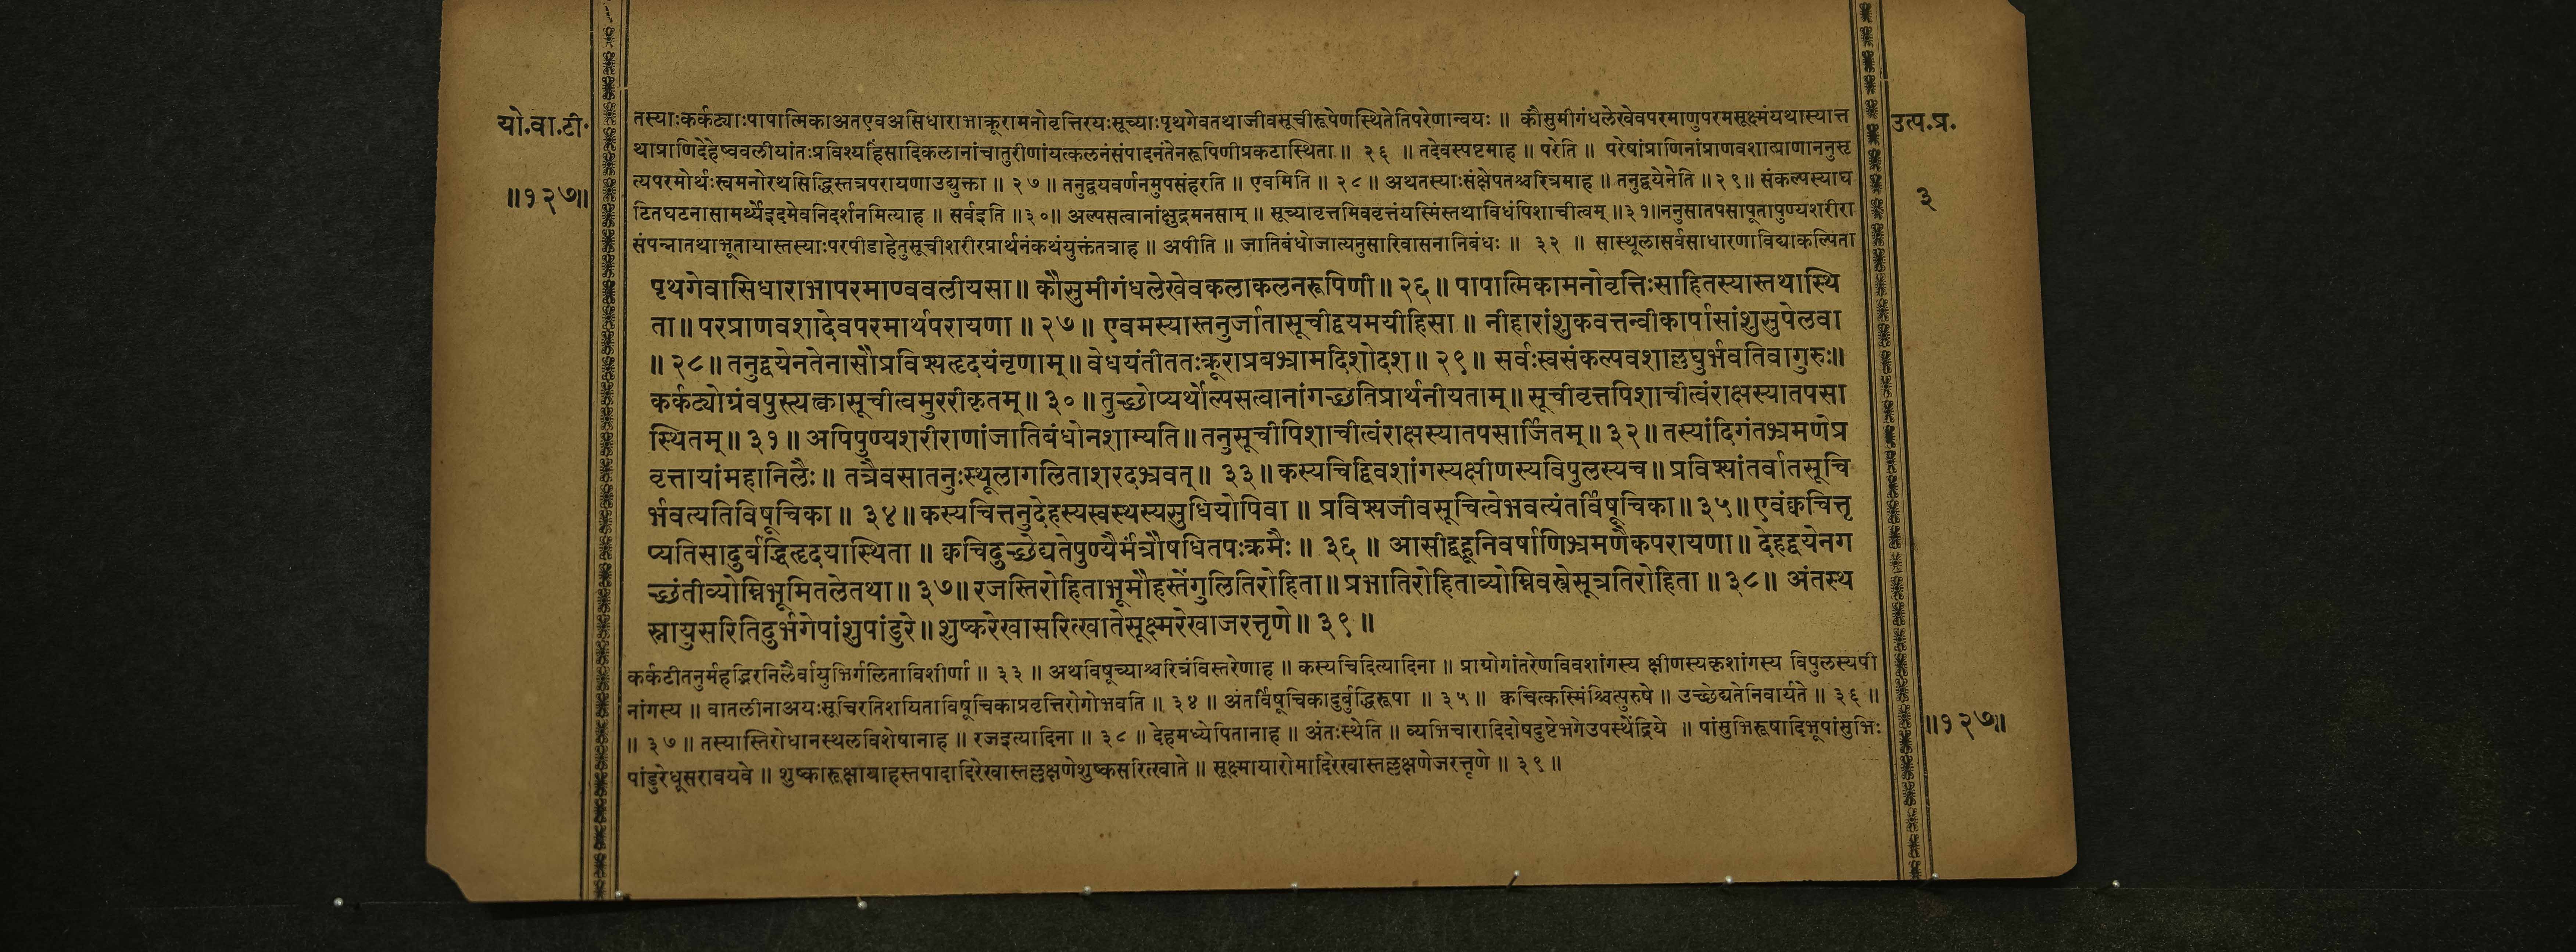 यो.वा.टी.
॥१२७॥
उत्प.प्र.
३
तस्याःकर्कट्याःपापात्मिकाअतएवअसिधाराभाक्रूरामनोवृत्तिरयःसूच्याःपृथगेवतथाजीवसूचीरूपेणस्थितेतिपरेणान्वयः ॥ कौसुमीगंधलेखेवपरमाणुपरमसूक्ष्मंयथास्यात्त
थाप्राणिदेहेष्ववलीयांतःप्रविश्यहिंसादिकलानांचातुरीणांयत्कलनंसंपादनंतेनरूपिणीप्रकटास्थिता ॥ २६ ॥ तदेवस्पष्टमाह ॥ परेति ॥ परेषांप्राणिनांप्राणवशात्प्राणाननुसृ
त्यपरमोर्थःस्वमनोरथसिद्धिस्तत्रपरायणाउद्युक्ता ॥ २७ ॥ तनुद्वयवर्णनमुपसंहरति ॥ एवमिति ॥ २८ ॥ अथतस्याःसंक्षेपतश्चरित्रमाह ॥ तनुद्वयेनेति ॥ २९ ॥ संकल्पस्याघ
टितघटनासामर्थ्येइदमेवनिदर्शनमित्याह ॥ सर्वइति ॥३०॥ अल्पसत्वानांक्षुद्रमनसाम् ॥ सूच्यावृत्तमिववृत्तंयस्मिंस्तथाविधंपिशाचीत्वम् ॥३१॥ननुसातपसापूतापुण्यशरीरा
संपन्नातथाभूतायास्तस्याःपरपीडाहेतुसूचीशरीरप्रार्थनंकथंयुक्तंतत्राह ॥ अपीति ॥ जातिबंधोजात्यनुसारिवासनानिबंधः ॥ ३२ ॥ सास्थूलासर्वसाधारणाविद्याकल्पिता
पृथगेवासिधाराभापरमाण्ववलीयसा ॥ कौसुमीगंधलेखेवकलाकलनरूपिणी ॥ २६ ॥ पापात्मिकामनोवृत्तिःसाहितस्यास्तथास्थि
ता ॥ परप्राणवशादेवपरमार्थपरायणा ॥ २७ ॥ एवमस्यास्तनुर्जातासूचीद्वयमयीहिसा ॥ नीहारांशुकवत्तन्वीकार्पासांशुसुपेलवा
॥ २८ ॥ तनुद्वयेनतेनासौप्रविश्यहृदयंनृणाम् ॥ वेधयंतीततःक्रूराप्रबभ्रामदिशोदश ॥ २९ ॥ सर्वःस्वसंकल्पवशाल्लघुर्भवतिवागुरुः॥
कर्कट्योग्रंवपुस्त्यक्त्वासूचीत्वमुररीकृतम् ॥ ३० ॥ तुच्छोप्यर्थोल्पसत्वानांगच्छतिप्रार्थनीयताम् ॥ सूचीवृत्तपिशाचीत्वंराक्षस्यातपसा
स्थितम् ॥ ३१ ॥ अपिपुण्यशरीराणांजातिबंधोनशाम्यति ॥ तनुसूचीपिशाचीत्वंराक्षस्यातपसार्जितम् ॥ ३२ ॥ तस्यांदिगंतभ्रमणेप्र
वृत्तायांमहानिलैः ॥ तत्रैवसातनुःस्थूलागलिताशरदभ्रवत् ॥ ३३ ॥ कस्यचिद्विवशांगस्यक्षीणस्यविपुलस्यच ॥ प्रविश्यांतर्वातसूचि
र्भवत्यतिविषूचिका ॥ ३४ ॥ कस्यचित्तनुदेहस्यस्वस्थस्यसुधियोपिवा ॥ प्रविश्यजीवसूचित्वेभवत्यंतर्विषूचिका ॥ ३५ ॥ एवंक्वचित्तृ
प्यतिसादुर्बद्धिहृदयास्थिता ॥ क्वचिदुच्छेद्यतेपुण्यैर्मंत्रौषधितपःक्रमैः ॥ ३६ ॥ आसीद्बहूनिवर्षाणिभ्रमणैकपरायणा ॥ देहद्वयेनग
च्छंतीव्योम्निभूमितलेतथा ॥ ३७ ॥ रजस्तिरोहिताभूमौहस्तेंगुलितिरोहिता ॥ प्रभातिरोहिताव्योम्निवस्त्रेसूत्रतिरोहिता ॥ ३८ ॥ अंतस्थ
स्नायुसरितिदुर्भगेपांशुपांडुरे ॥ शुष्करेखासरित्खातेसूक्ष्मरेखाजरत्तृणे ॥ ३९ ॥
कर्कटीतनुर्महद्भिरनिलैर्वायुभिर्गलिताविशीर्णा ॥ ३३ ॥ अथविषूच्याश्चरित्रंविस्तरेणाह ॥ कस्यचिदित्यादिना ॥ प्रायोगांतरेणविवशांगस्य क्षीणस्यकृशांगस्य विपुलस्यपी
नांगस्य ॥ वातलीनाअयःसूचिरतिशयिताविषूचिकाप्रवृत्तिरोगोभवति ॥ ३४ ॥ अंतर्विषूचिकादुर्बुद्धिरूपा ॥ ३५ ॥ क्वचित्कस्मिंश्चित्पुरुषे ॥ उच्छेद्यतेनिवार्यते ॥ ३६ ॥
॥ ३७ ॥ तस्यास्तिरोधानस्थलविशेषानाह ॥ रजइत्यादिना ॥ ३८ ॥ देहमध्येपितानाह ॥ अंतःस्थेति ॥ व्यभिचारादिदोषदुष्टेभगेउपस्थेंद्रिये ॥ पांसुभिरूषादिभूपांसुभिः
पांडुरेधूसरावयवे ॥ शुष्कारूक्षायाहस्तपादादिरेखास्तल्लक्षणेशुष्कसरित्खाते ॥ सूक्ष्मायारोमादिरेखास्तल्लक्षणेजरत्तृणे ॥ ३९ ॥
॥१२७॥